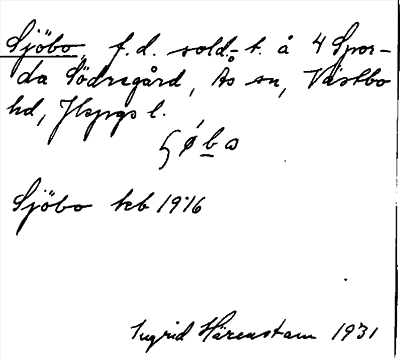 Sjöbo, f.d. sold.-t. å 4 Spor-
da Södregård, Ås sn, Västbo
hd, Jkpgs l.
Sjöbo kb 1916
Ingrid Härenstam 1931